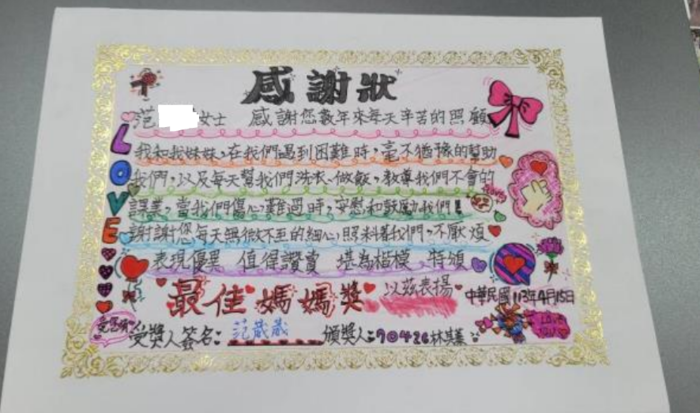 感謝狀
范 女士 感謝您數年來每天辛苦的照顧
我和我妹妹,在我們遇到困難時,毫不猶豫的幫助
我們,以及每天幫我們洗衣、做飯,教導我們不會的
課業,當我們傷心難過時,安慰和鼓勵我們!
謝謝您每天無微不至的細心照料著我們,不厭煩
表現優異 值得讚賞 堪為楷模,特頒
最佳媽媽獎 以茲表揚
中華民國113年4月15日
LOVE
受獎人簽名: 范葳葳
頒獎人:70426林